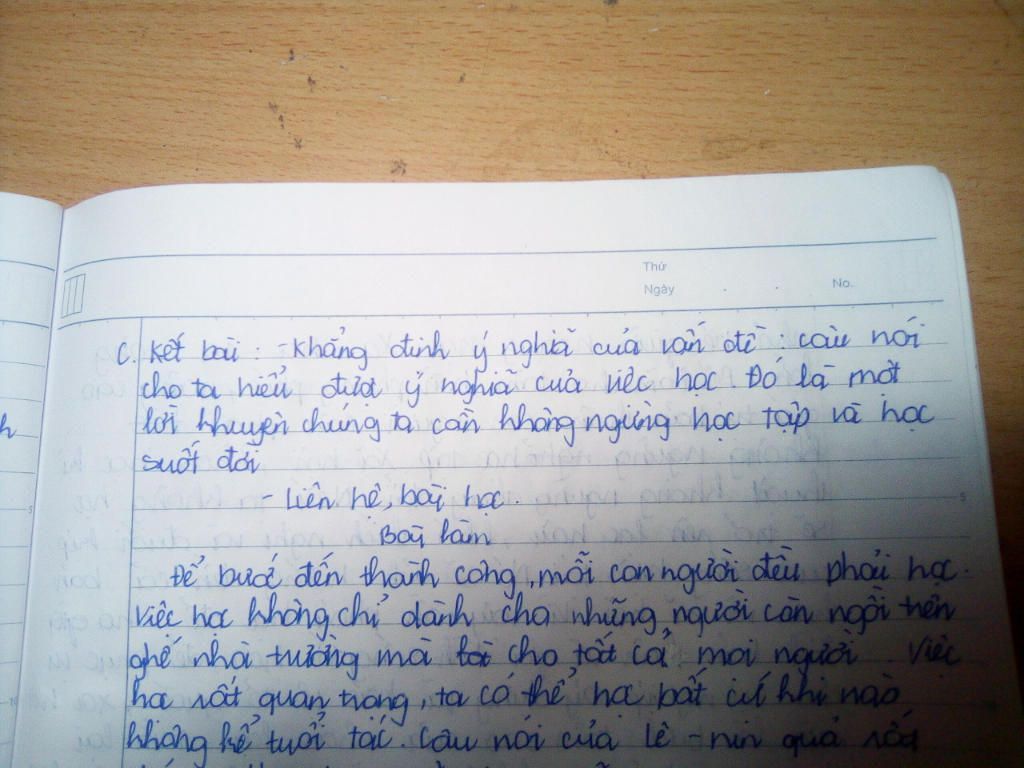 Thứ
Ngày . . No.
C. Kết bài : - Khẳng định ý nghĩa của vấn đề : câu nói
cho ta hiểu được ý nghĩa của việc học. Đó là một
lời khuyên chúng ta cần không ngừng học tập và học
suốt đời
- Liên hệ, bài học.
Bài làm
Để bước đến thành công, mỗi con người đều phải học.
Việc học không chỉ dành cho những người còn ngồi trên
ghế nhà trường mà cho tất cả mọi người. Việc
học rất quan trọng, ta có thể học bất cứ khi nào
không kể tuổi tác. Câu nói của Lê - nin quả rất